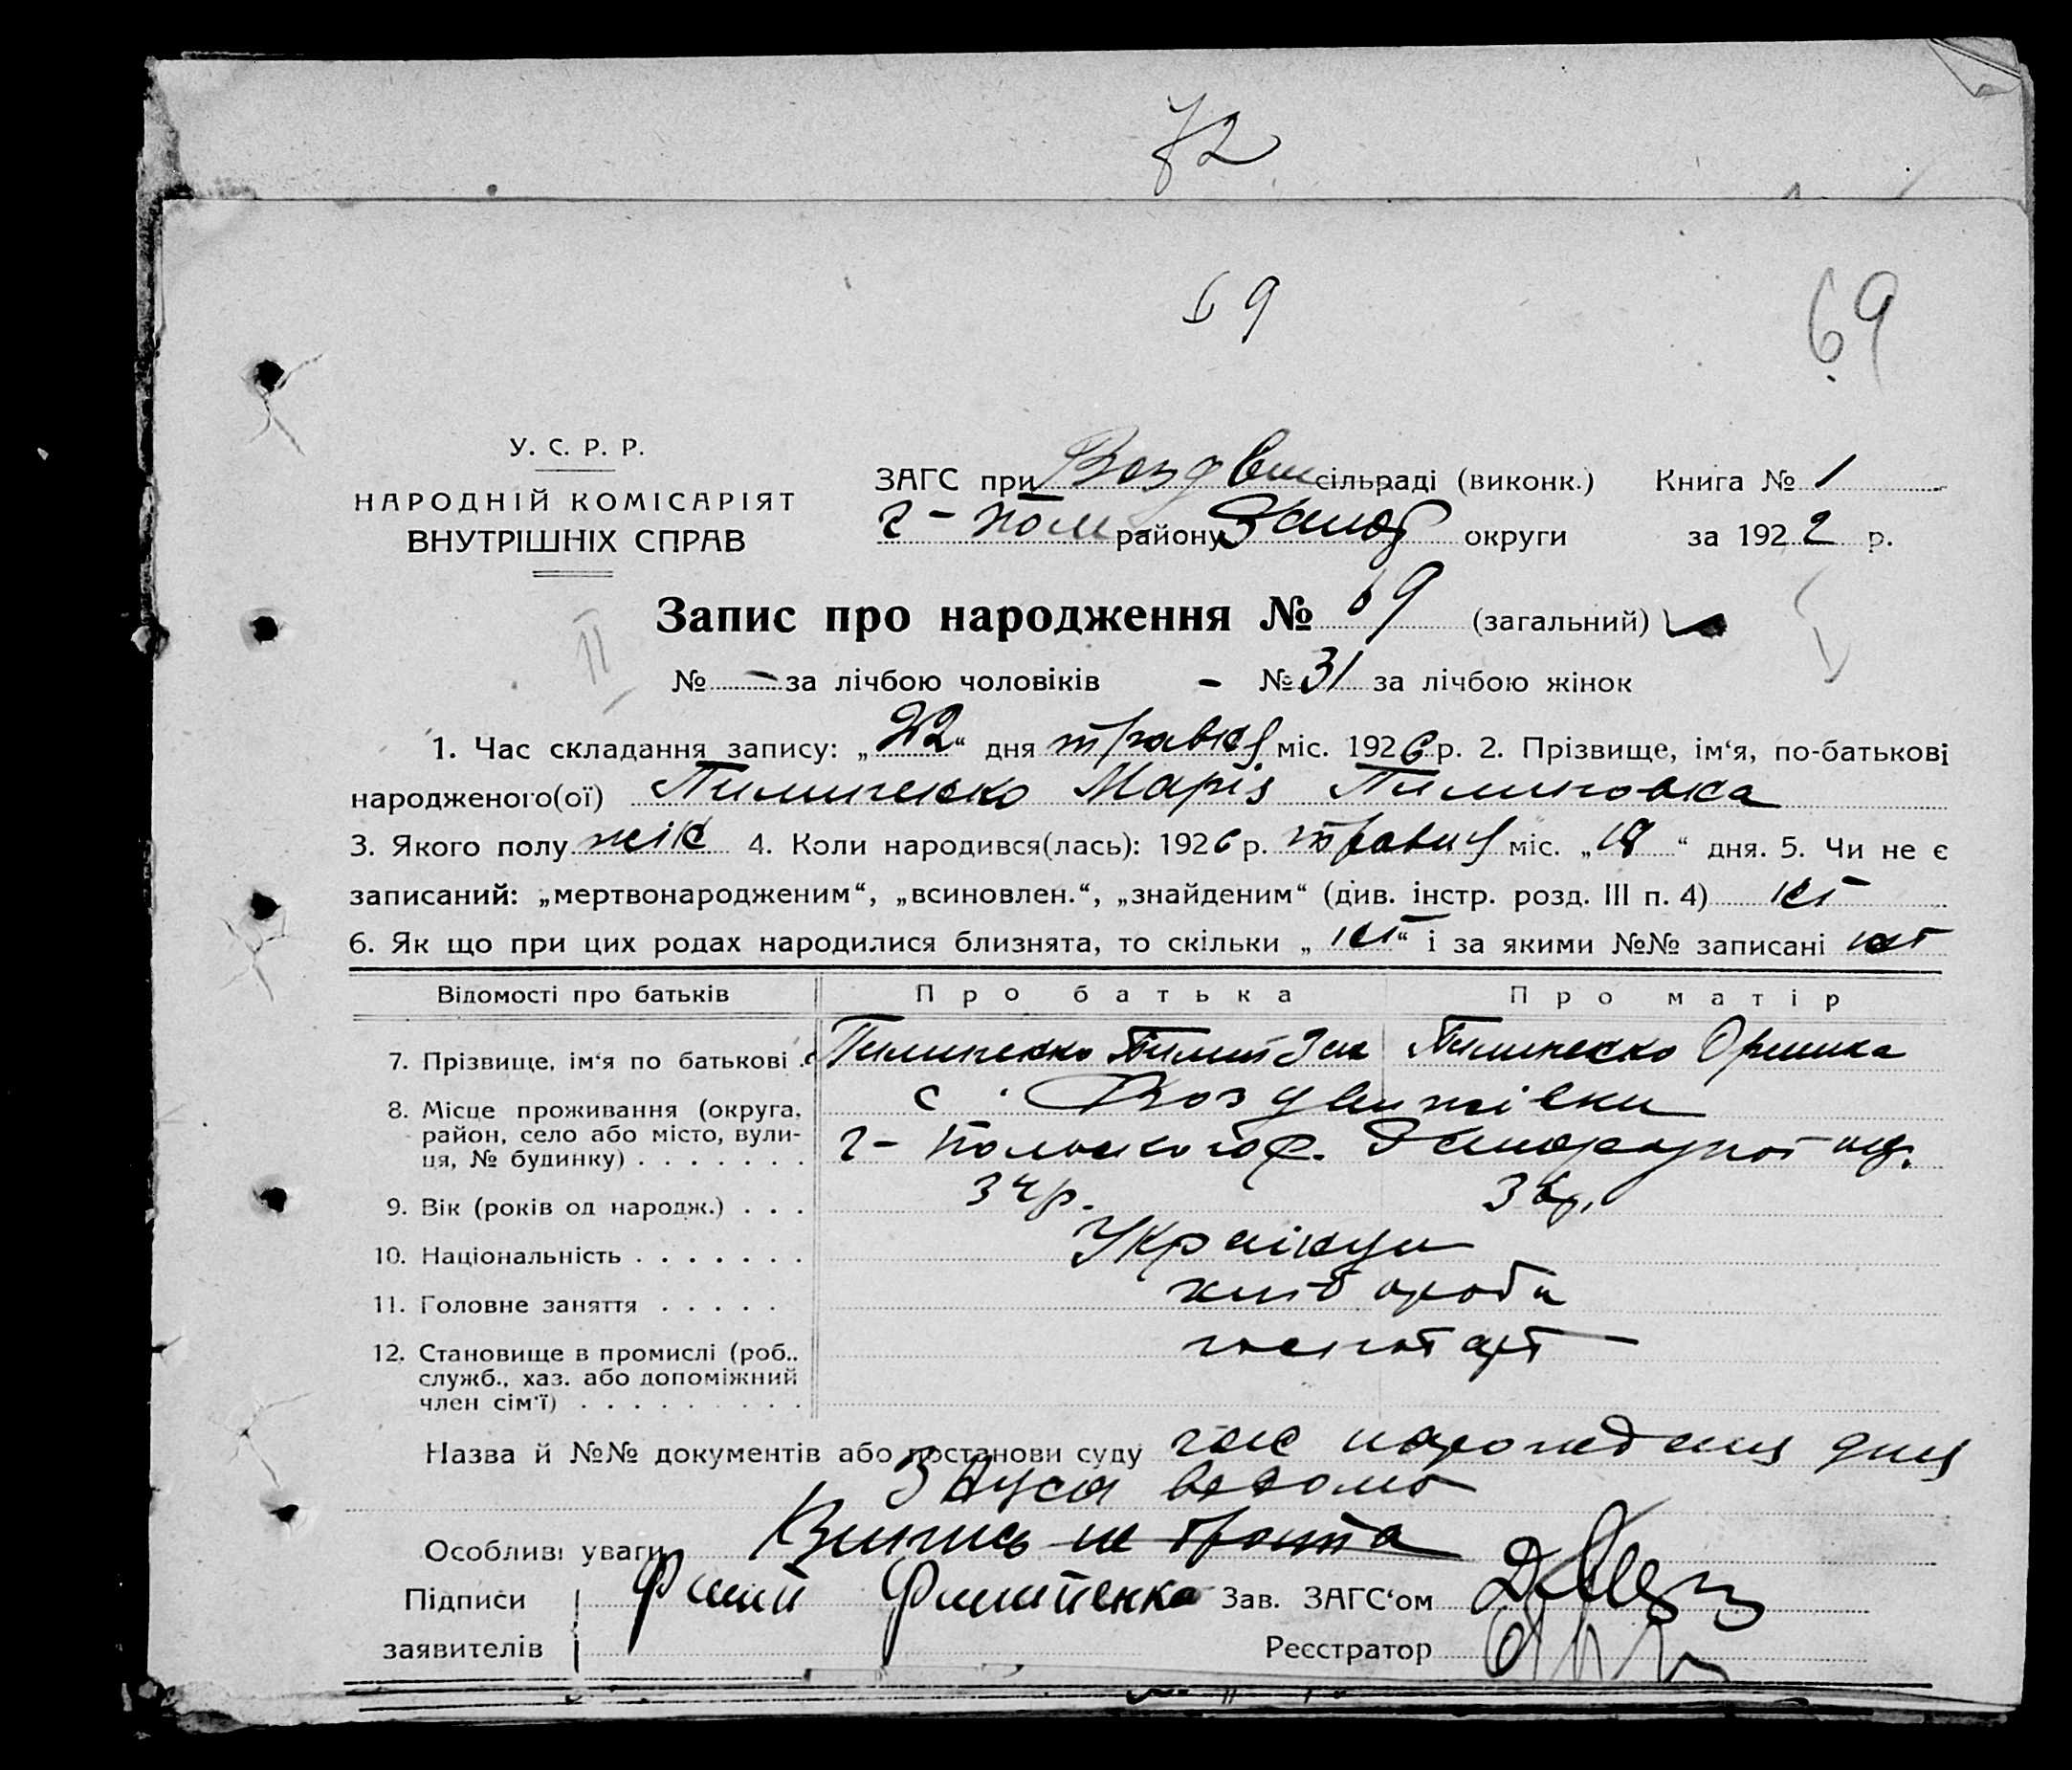 72
69
69
У. С. Р. Р.
НАРОДНІЙ КОМІСАРІЯТ
ВНУТРІШНІХ СПРАВ
ЗАГС при Воздвиж сільраді (виконк.) Книга № 1
Г-Пол району Запор округи за 1922 р.
Запис про народження № 69 (загальний)
II
№ – за лічбою чоловіків – № 31 за лічбою жінок
1. Час складання запису: „22“ дня травня міс. 1926 р. 2. Прізвище, ім‘я, по-батькові
народженого(ої) Пилипенко Марія Пилиповна
3. Якого полу жін 4. Коли народився(лась): 1926 р. травня міс. „18“ дня. 5. Чи не є
записаний: „мертвонародженим“, „всиновлен.“, „знайденим“ (див. інстр. розд. III п. 4) ні
6. Як що при цих родах народилися близнята, то скільки „ні“ і за якими №№ записані ні
Відомості про батьків Про батька Про матір
7. Прізвище, ім‘я по батькові . Пилипенко Пилип Пилипенко Оришка
8. Місце проживання (округа, с. Воздвижівки
район, село або місто, вули- Г-Польского р.
ця, № будинку) . . . . . . .
9. Вік (років од народж.) . . . 34р. 36р.
10. Національність . . . . . . . Українци
11. Головне заняття . . . . . хлібороби
12. Становище в промислі (роб.,
служб., хаз. або допоміжний
член сім‘ї) . . . . . . . . .
Назва й №№ документів або постанови суду нарождения
Особливі уваги Випись не
Підписи Филип Филипенко Зав. ЗАГС‘ом
заявителів Реєстратор